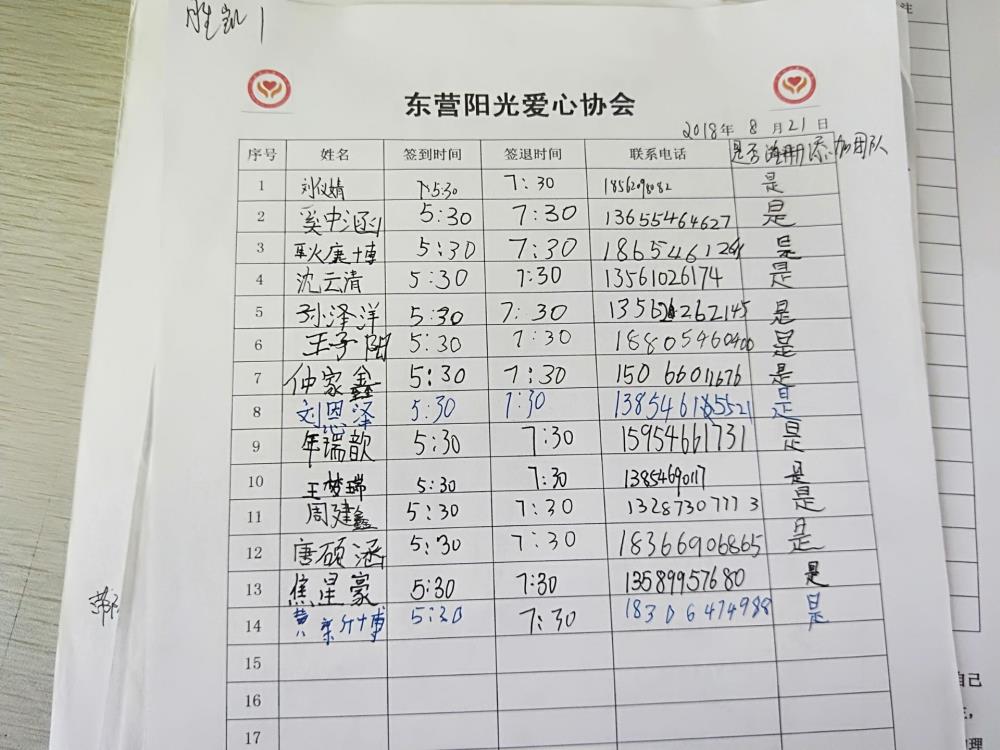 胜凯1
注
东营阳光爱心协会
2018年 8月21日
序号 姓名 签到时间 签退时间 联系电话 是否注册添加团队
1 刘仪婧 下5:30 7:30 是
2 奚中涵 5:30 7:30 13655464627 是
3 耿庭博 5:30 7:30 是
4 沈云清 5:30 7:30 13561026174 是
5 孙泽洋 5:30 7:30 是
6 王子阳 5:30 7:30 18805460400 是
7 仲家鑫 5:30 7:30 15066011676 是
8 刘恩泽 5:30 7:30 是
9 年瑞歆 5:30 7:30 15954661731 是
10 王梦瑞 5:30 7:30 13854690117 是
11 周建鑫 5:30 7:30 13287307773 是
12 唐硕涵 5:30 7:30 18366906865 是
13 焦星豪 5:30 7:30 13589957680 是
14 黄 博 5:30 7:30 18306474988 是
15
16
17
自己
理